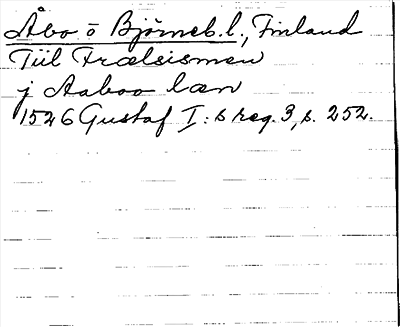 Åbo o Björneb. l., Finland
Tiil Frælsismen
j Aaboo læn
1526 Gustaf I:s reg. 3, s. 252.